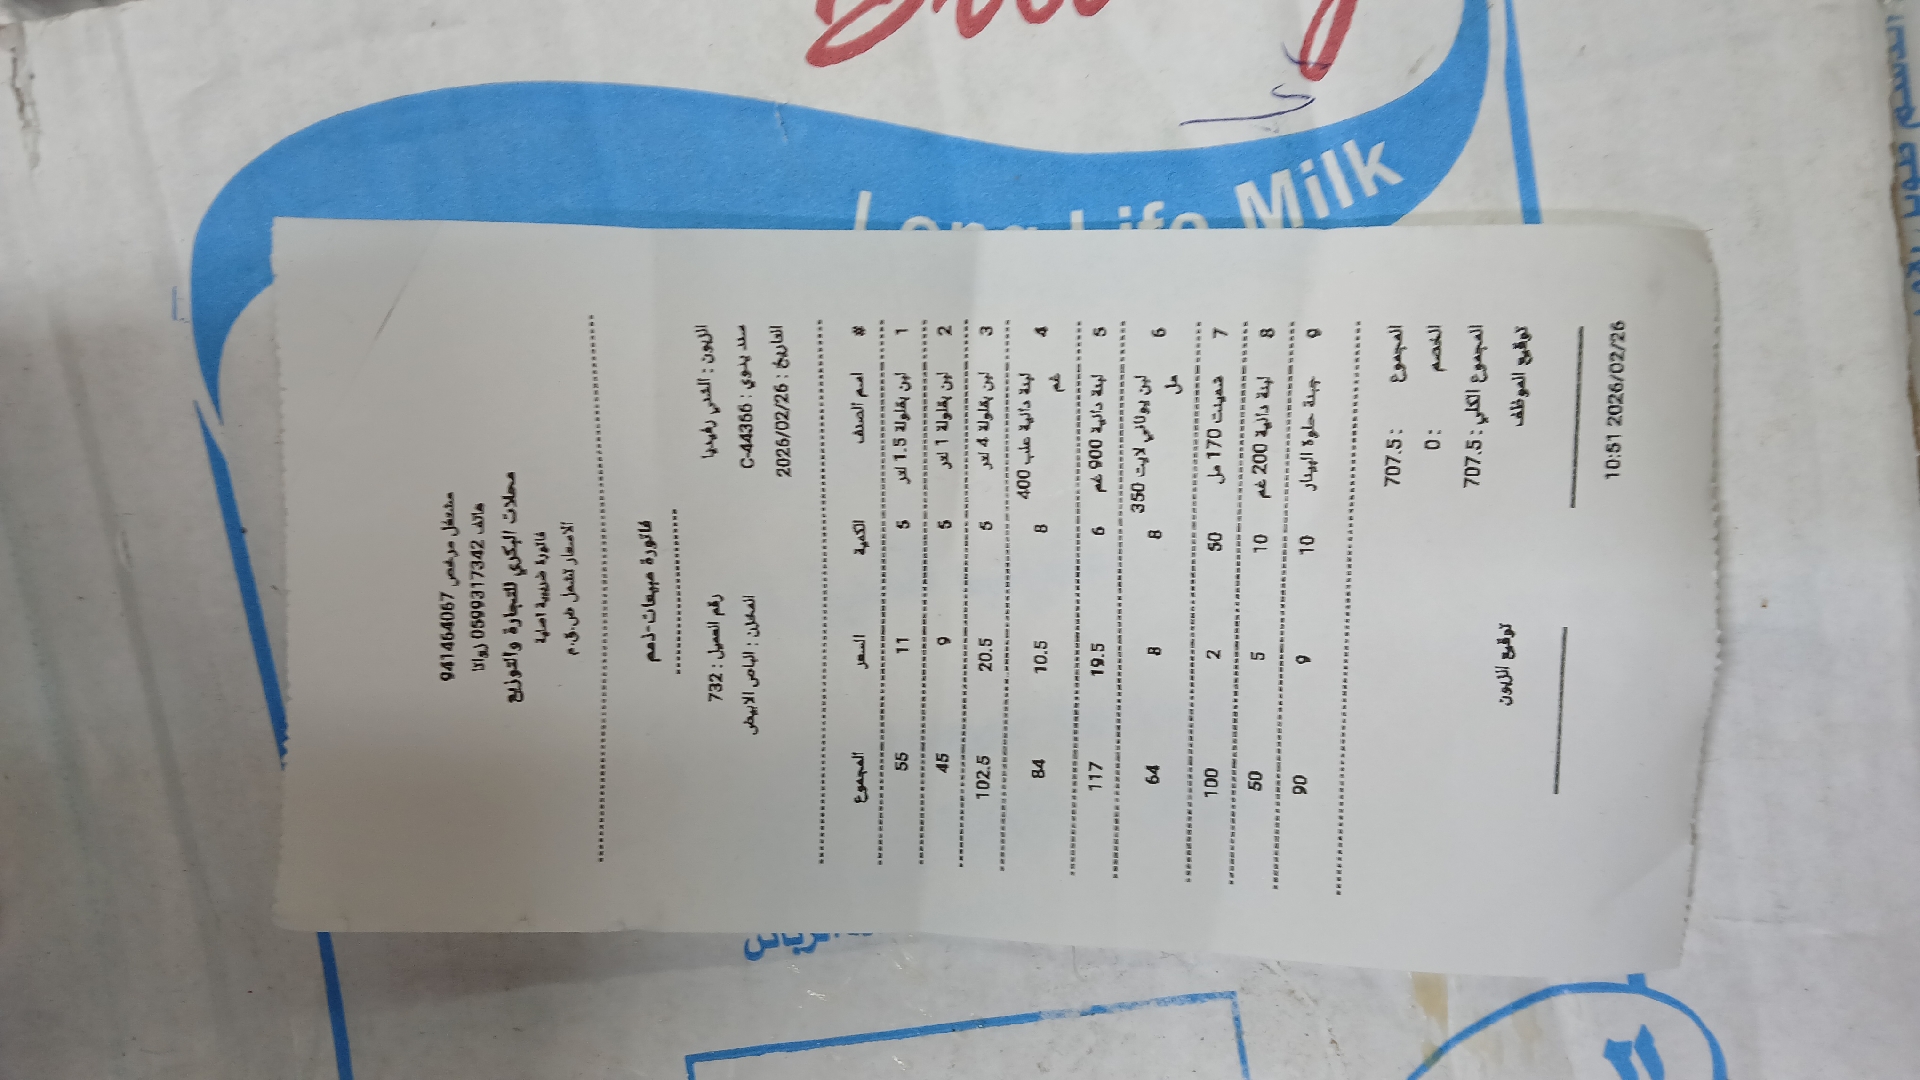 مشتغل مرخص 941464067
هاتف 0599317342 زواتا
محلات البكري للتجارة والتوزيع
فاتورة ضريبية اصلية
الاسعار تشمل ض.ق.م
فاتورة مبيعات-ذمم
الزبون : رقم العميل : 732
سند يدوي : C-44366 المخزن : الباص الابيض
التاريخ : 2026/02/26
# اسم الصنف الكمية السعر المجموع
1 لبن بقلولة 1.5 لتر 5 11 55
2 لبن بقلولة 1 لتر 5 9 45
3 لبن بقلولة 4 لتر 5 20.5 102.5
4 لبنة دالية علب 400 غم 8 10.5 84
5 لبنة دالية 900 غم 6 19.5 117
6 لبن يوناني لايت 350 مل 8 8 64
7 شمينت 170 مل 50 2 100
8 لبنة دالية 200 غم 10 5 50
9 جبنة حلوة البينار 10 9 90
المجموع : 707.5
الخصم : 0
المجموع الكلي : 707.5
توقيع الموظف توقيع الزبون
10:51 2026/02/26
Long Life Milk